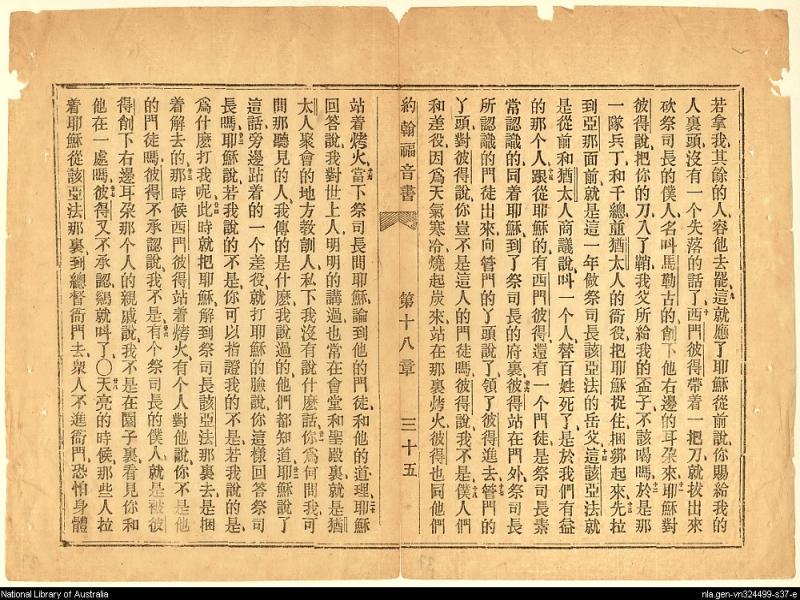 若拿我其餘的人容他去罷這就應了耶穌從前說你賜給我的
人裏頭沒有一个失落的話了西門彼得帶着一把刀就拔出來
砍祭司長的僕人名叫馬勒古的削下他右邊的耳朶來耶穌對
彼得說把你的刀入了鞘我父所給我的盃子不該喝嗎於是那
一隊兵丁和千總並猶太人的衙役把耶穌捉住捆綁起來先拉
到亞那面前就是這一年做祭司長該亞法的岳父這該亞法就
是從前和猶太人商議說叫一个人替百姓死了是於我們有益
的那个人跟從耶穌的有西門彼得還有一个門徒是祭司長素
常認識的同着耶穌到了祭司長的府裏彼得站在門外祭司長
所認識的門徒出來向管門的丫頭說了領了彼得進去管門的
丫頭對彼得說你豈不是這人的門徒嗎彼得說我不是僕人們
和差役因爲天氣寒冷燒起炭來站在那裏烤火彼得也同他們
約翰福音書 第十八章 三十五
站着烤火當下祭司長問耶穌論到他的門徒和他的道理耶穌
回答說我對世上人明明的講過也常在會堂和聖殿裏就是猶
太人聚會的地方教訓人私下我沒有說什麽話你爲何問我可
問那聽見的人我傳的是什麽我說過的他們都知道耶穌說了
這話旁邊站着的一个差役就打耶穌的臉說你這樣回答祭司
長嗎耶穌說若我說的不是你可以指證我的不是若我說的是
爲什麽打我呢此時就把耶穌解到祭司長該亞法那裏去是捆
着解去的那時候西門彼得站着烤火有个人對他說你不是他
的門徒嗎彼得不承認說我不是有个祭司長的僕人就是被彼
得削下右邊耳朶那个人的親戚說我不是在園子裏看見你和
他在一處嗎彼得又不承認鷄就叫了〇天亮的時候那些人拉
着耶穌從該亞法那裏到總督衙門去衆人不進衙門恐怕身體
National Library of Australia
nla.gen-vn324499-s37-e